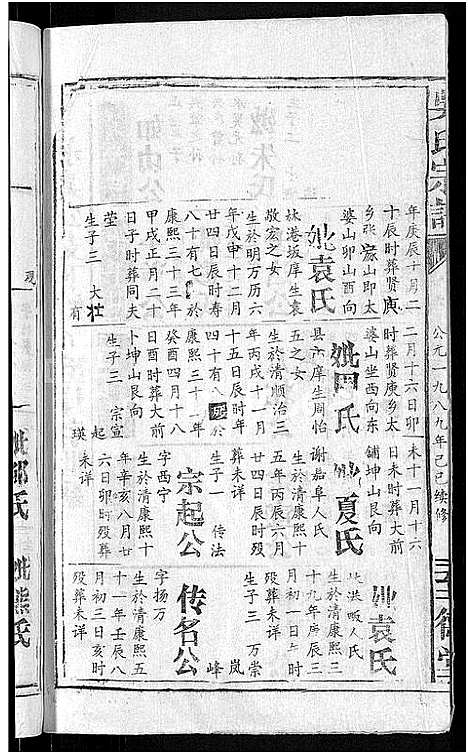 氏宗谱
公元一九八九年己巳续修
年庚辰十月二
十辰时葬贤庾
乡张家山即太
婆山卯山西向
妣袁氏
妹港坂庠生袁
敬宏之女
生於明万历六
年戊申十二月
廿四日辰时寿
八十有七 於
康熙三十三年
甲戌正月二十
日子时葬同夫
茔
生子三 大壮
有
二月十六日卯
时葬贤庾乡太
婆山坐西向东
妣田氏
县市庠生周怡
五之女
生於清顺治三
年丙戌十一月
十五日辰时年
四十有八殁於
康熙三十一年
癸酉四月十八
日酉时葬大前
卜坤山艮向
生子三 宗宣
起
瑛
未十一月十六
日未时葬大前
铺坤山艮向
妣夏氏
谢嘉阜人氏
生於清康熙十
五年丙辰六月
廿四日辰时殁
葬未详
生子一 传法
宗起公
字西宁
生於清康熙十
年辛亥八月廿
六日卯时殁葬
未详
妣袁氏
洪畈人氏
生於清康熙三
十九年庚辰三
月初一日 时
殁葬未详
生子三 万崇
岚
峰
传名公
字扬万
生於清康熙五
十一年壬辰八
月初三日亥时
殁葬未详
妣郭氏
妣熊氏